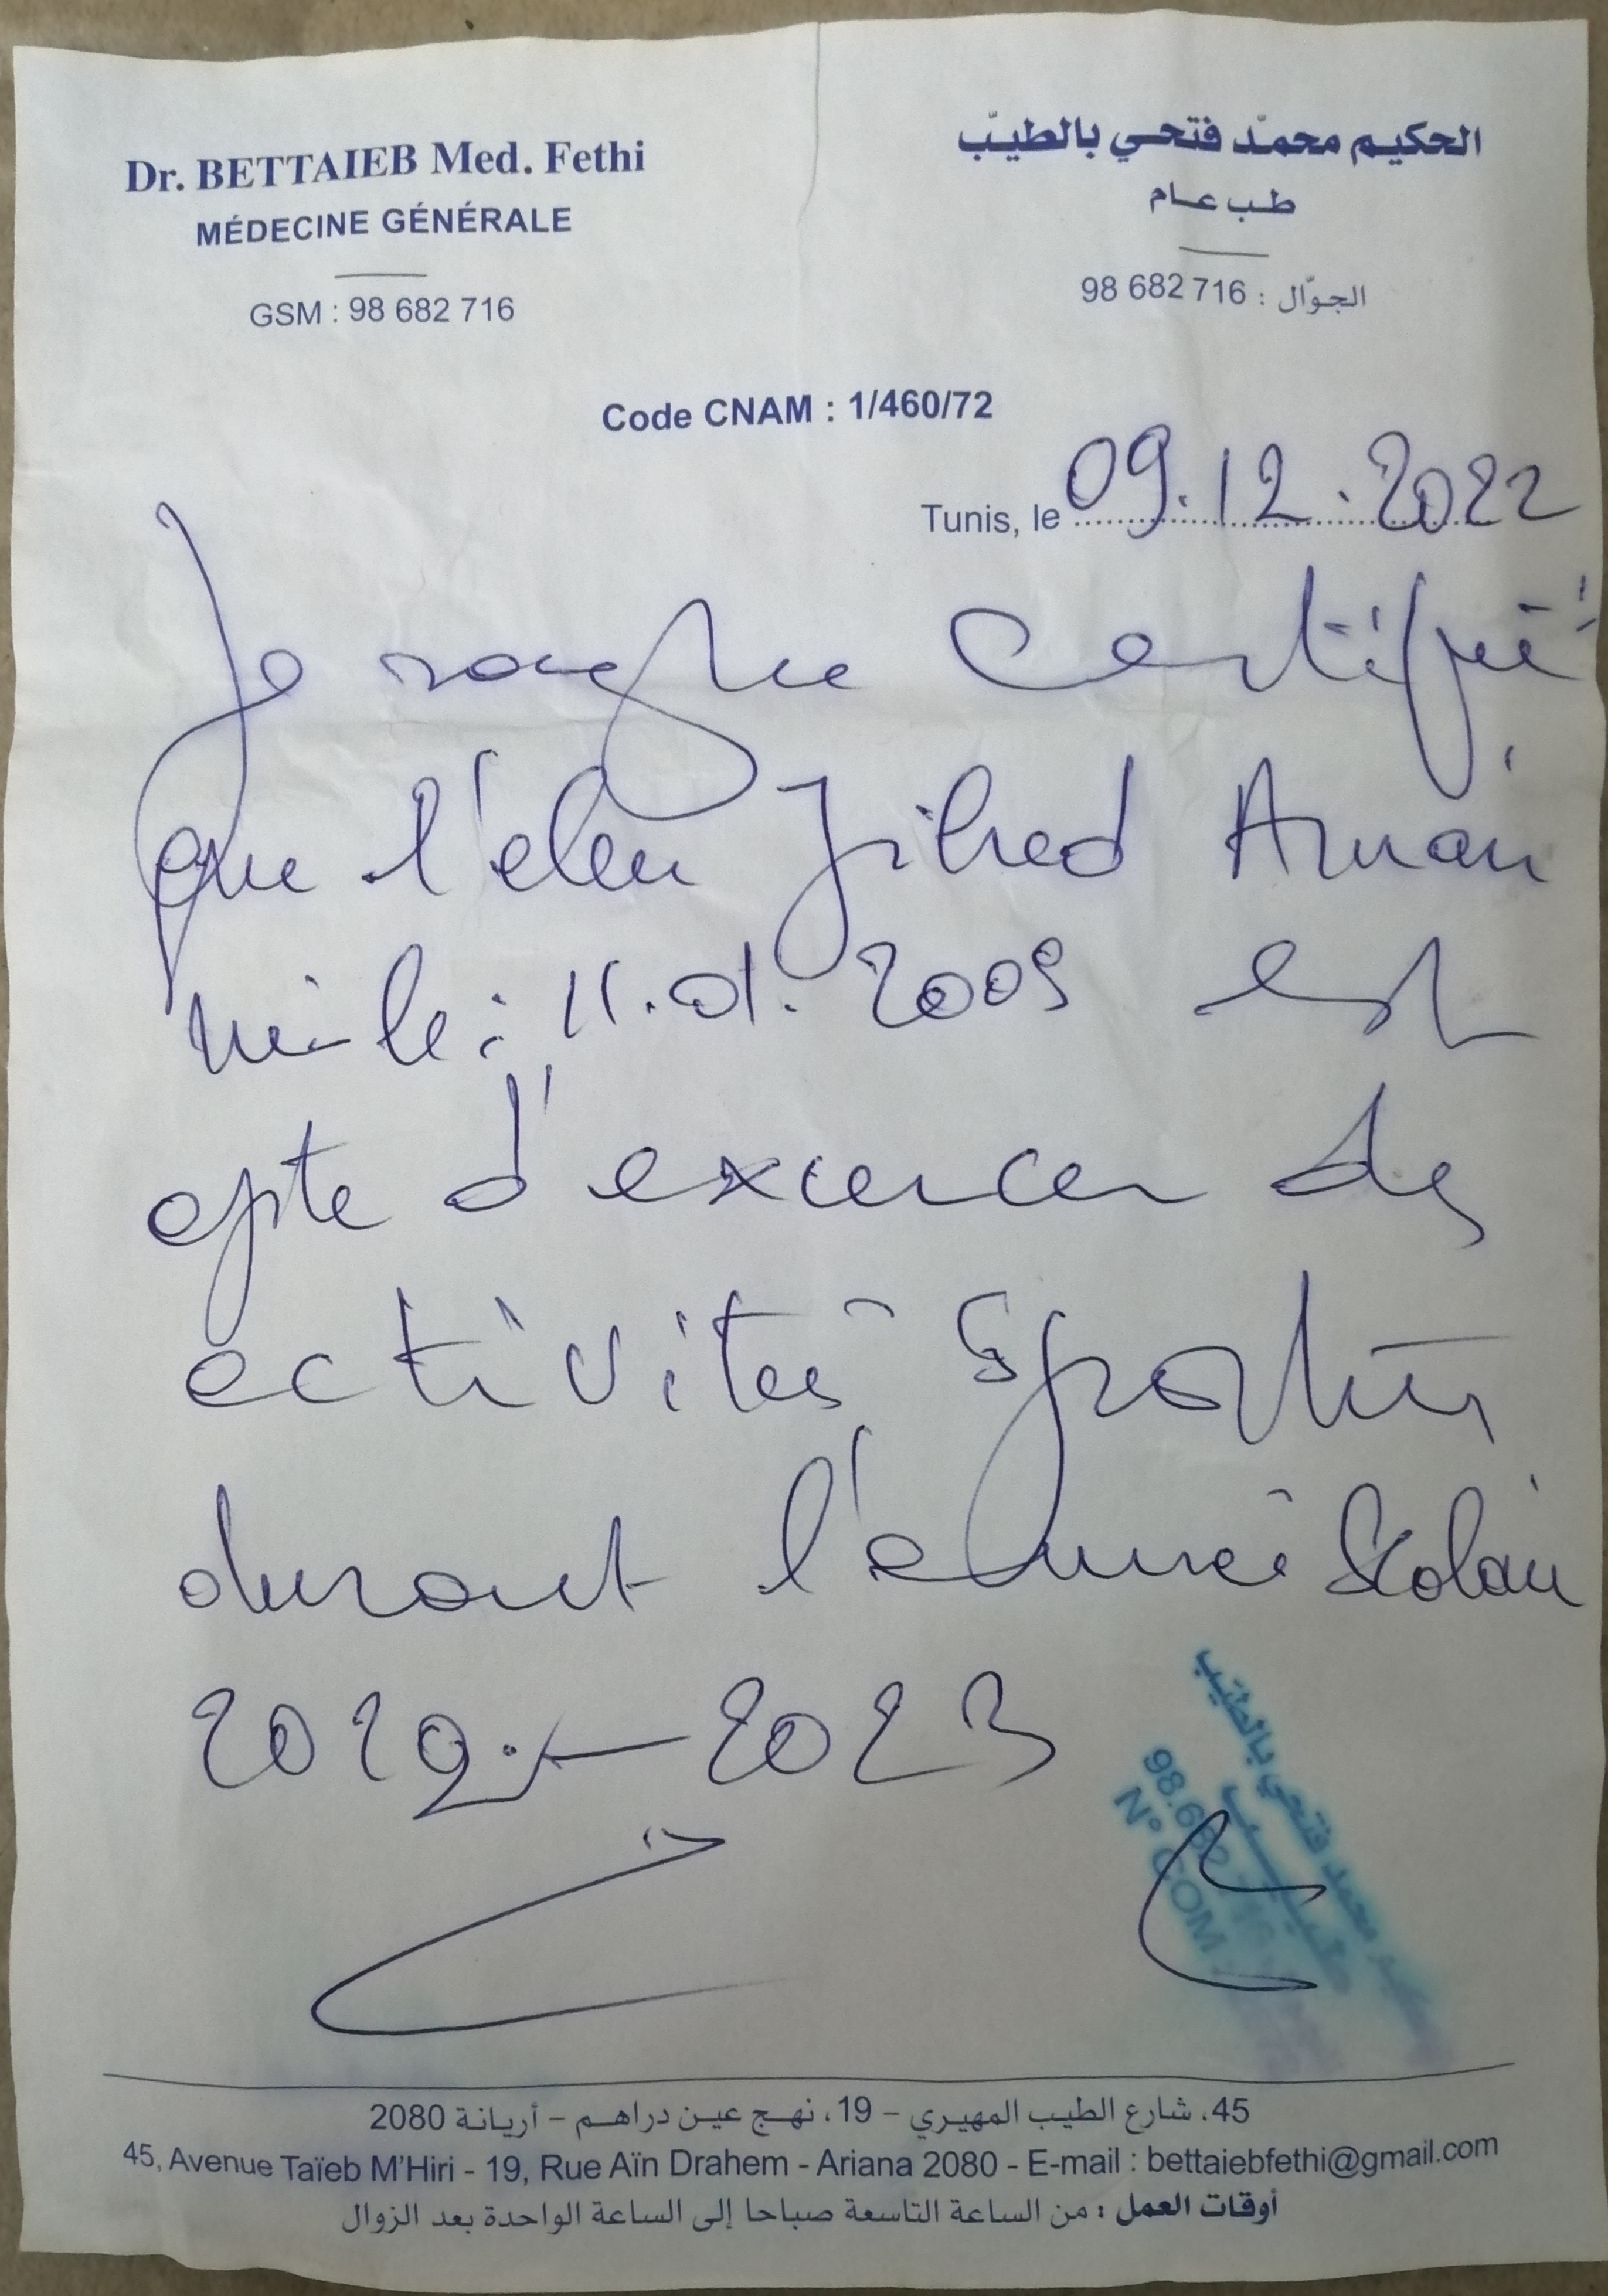 Dr. BETTAIEB Med. Fethi
MÉDECINE GÉNÉRALE
GSM : 98 682 716
الحكيم محمّد فتحي بالطيّب
طب عام
الجوّال : 98 682 716
Code CNAM : 1/460/72
Tunis, le 09.12.2022
Je certifie
que l'eleve Jihed
né le : 11.01.2009 est
apte d'exercer des
activités sportives
durant l'année scolaire
2022 - 2023
محمد فتحي بالطيّب
طبيب
98.682.716
N° COM
45، شارع الطيب المهيري – 19، نهج عين دراهم – أريانة 2080
45, Avenue Taïeb M'Hiri - 19, Rue Aïn Drahem - Ariana 2080 - E-mail : bettaiebfethi@gmail.com
أوقات العمل : من الساعة التاسعة صباحا إلى الساعة الواحدة بعد الزوال